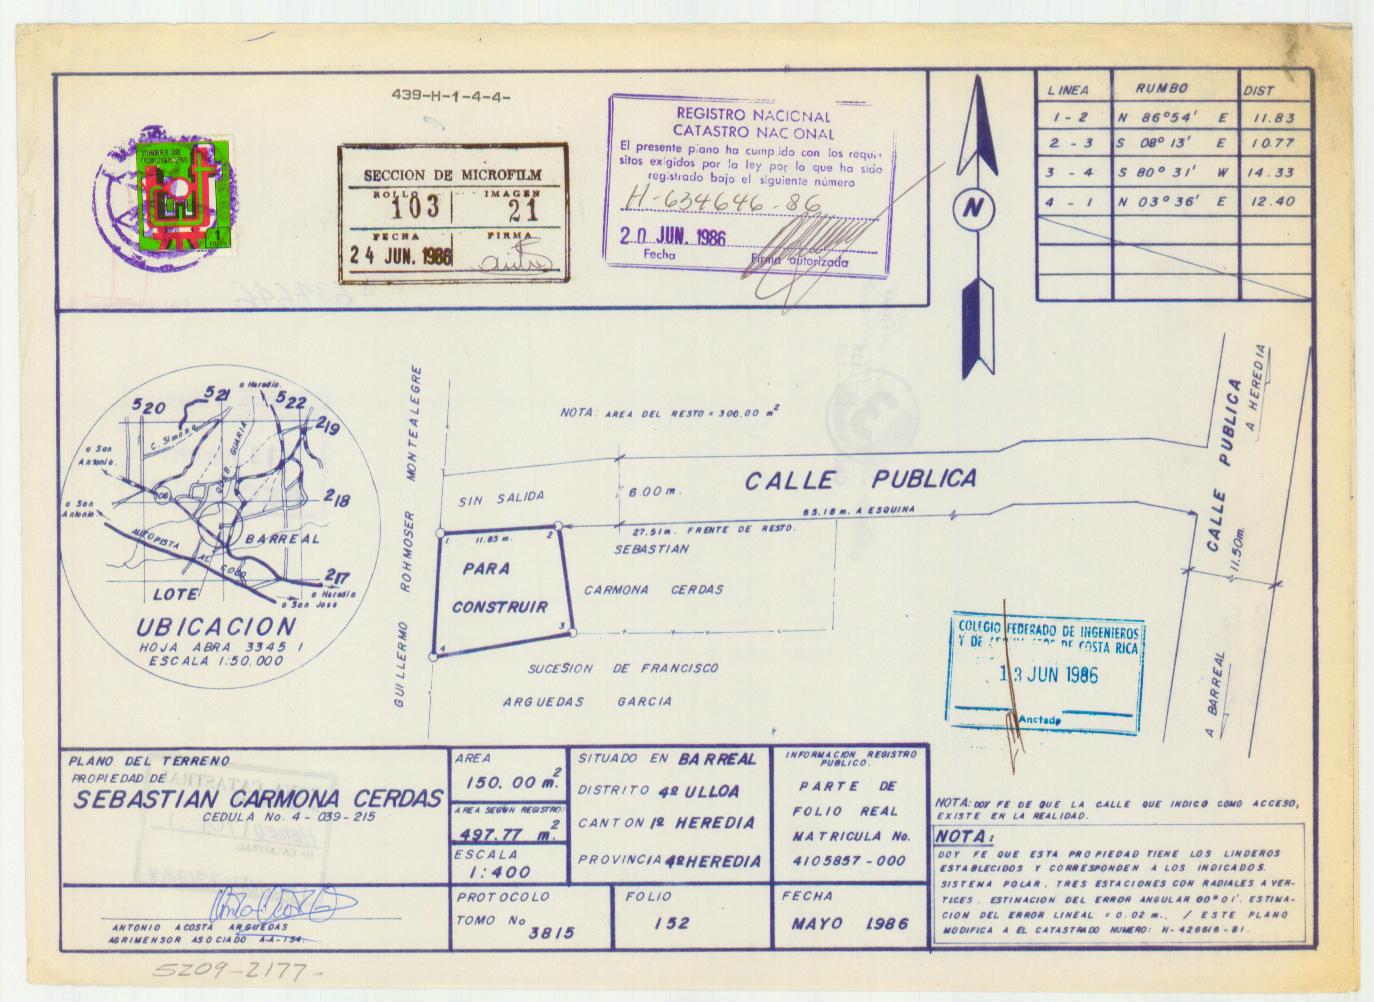 439-H-1-4-4-
TIMBRE DE
TOPOGRAFIA
1
SECCION DE MICROFILM
ROLLO IMAGEN
103 21
FECHA FIRMA
24 JUN. 1986
REGISTRO NACIONAL
CATASTRO NACIONAL
El presente plano ha cumplido con los requi-
sitos exigidos por la ley por lo que ha sido
registrado bajo el siguiente número
H-634646-86
20 JUN. 1986
Fecha Firma autorizada
N
LINEA RUMBO DIST
1-2 N 86°54' E 11.83
2-3 S 08°13' E 10.77
3-4 S 80°31' W 14.33
4-1 N 03°36' E 12.40
520 521 522
a Heredia
219
a San
Antonio
C. Simona
QUEB. GUARIA
106
218
a San
Antonio
AUTOPISTA
AL
COCO
BARREAL
217
a Heredia
a San Jose
LOTE
UBICACION
HOJA ABRA 3345 I
ESCALA 1:50.000
GUILLERMO ROHMOSER MONTEALEGRE
NOTA: AREA DEL RESTO = 300.00 m2
SIN SALIDA
6.00 m.
CALLE PUBLICA
65.18 m. A ESQUINA
27.51 m. FRENTE DE RESTO.
1 11.83 m. 2
PARA
CONSTRUIR
3
4
SEBASTIAN
CARMONA CERDAS
SUCESION DE FRANCISCO
ARGUEDAS GARCIA
CALLE PUBLICA
A HEREDIA
11.50m.
A BARREAL
COLEGIO FEDERADO DE INGENIEROS
Y DE ARQUITECTOS DE COSTA RICA
13 JUN 1986
Anotado
PLANO DEL TERRENO
PROPIEDAD DE
SEBASTIAN CARMONA CERDAS
CEDULA No. 4-039-215
AREA
150.00 m2
AREA SEGUN REGISTRO:
497.77 m2
ESCALA
1:400
SITUADO EN BARREAL
DISTRITO 4º ULLOA
CANTON 1º HEREDIA
PROVINCIA 4º HEREDIA
INFORMACION REGISTRO
PUBLICO.
PARTE DE
FOLIO REAL
MATRICULA No.
4105857-000
ANTONIO ACOSTA ARGUEDAS
AGRIMENSOR ASOCIADO A-A-194.
PROTOCOLO
TOMO No
3815
FOLIO
152
FECHA
MAYO 1986
NOTA: DOY FE DE QUE LA CALLE QUE INDICO COMO ACCESO,
EXISTE EN LA REALIDAD.
NOTA:
DOY FE QUE ESTA PROPIEDAD TIENE LOS LINDEROS
ESTABLECIDOS Y CORRESPONDEN A LOS INDICADOS.
SISTEMA POLAR. TRES ESTACIONES CON RADIALES A VER-
TICES. ESTIMACION DEL ERROR ANGULAR 00°01'. ESTIMA-
CION DEL ERROR LINEAL = 0.02 m., / ESTE PLANO
MODIFICA A EL CATASTRADO NUMERO: H-426616-81.
5209-2177-